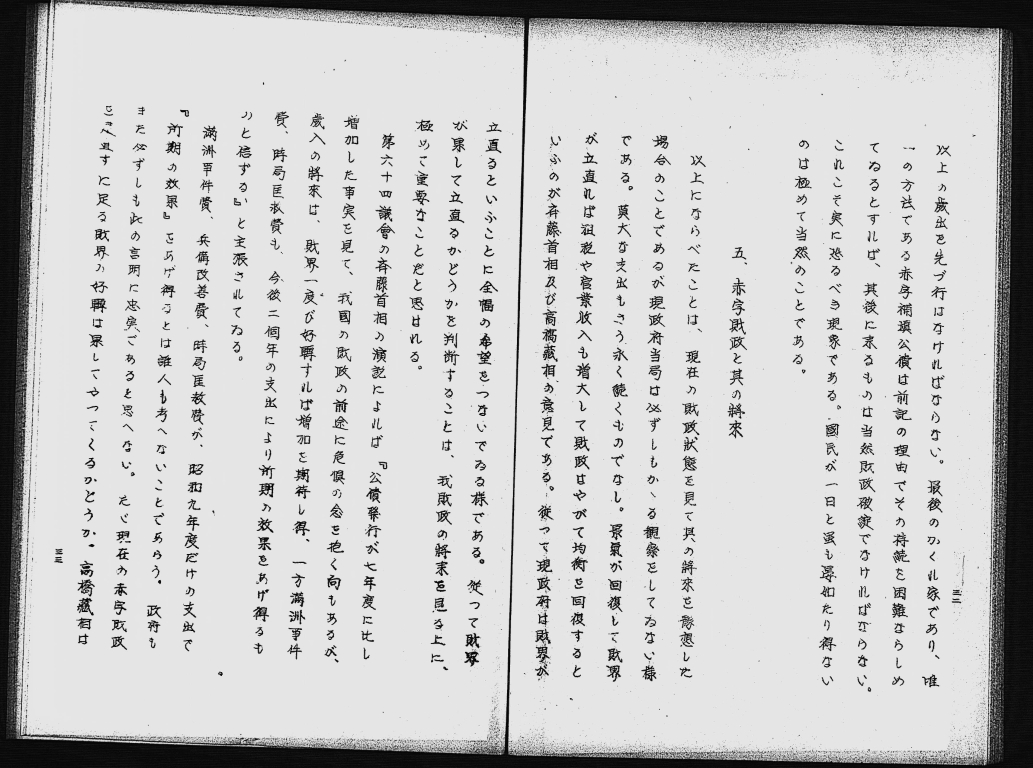 以上の歲出を先づ行はなければならない。最後のかくれ家であり、唯
一の方法である赤字補填公債は前記の理由でその持続を困難ならしめ
てゐるとすれば、其後に来るものは当然財政破綻でなければならない。
これこそ実に恐るべき現象である。國民が一日と雖も晏如たり得ない
のは極めて当然のことである。
五、赤字財政と其の將來
以上にならべたことは、現在の財政狀態を見て其の將來を豫想した
場合のことであるが現政府当局は必ずしもかゝる観察をしてゐない様
である。莫大な支出もさう永く続くものでなし。景氣が回復して財界
が立直れば租税や官業收入も増大して財政はやがて均衡を回復すると
いふのが斉藤首相及び高橋藏相の意見である。従つて現政府は財界が
三二
立直るといふことに全幅の希望をつないでゐる様である。従つて財界
が果して立直るかどうかを判断することは、我財政の將来を見る上に、
極めて重要なことだと思はれる。
第六十四議會の斉藤首相の演説によれば『公債発行が七年度に比し
増加した事実を見て、我國の財政の前途に危惧の念を抱く向もあるが、
歲入の將來は、財界一度び好轉すれば増加を期待し得、一方滿洲事件
費、時局匡救費も、今後二個年の支出により所期の效果をあげ得るも
のと信ずる』と主張されてゐる。
滿洲事件費、兵備改善費、時局匡救費が、昭和九年度だけの支出で
『所期の效果』をあげ得るとは誰人も考へないことであらう。政府も
また必ずしも此の言明に忠実であると思へない。たゞ現在の赤字財政
に足る財界の好轉は果してやつてくるかどうか。高橋藏相は
三三